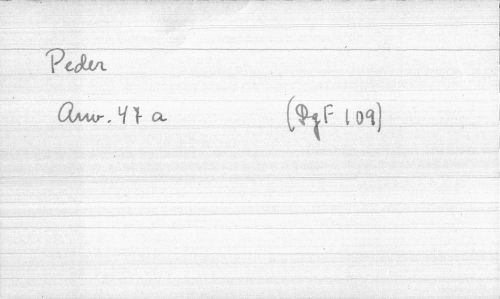 Peder
Anv. 47 a (DgF 109)